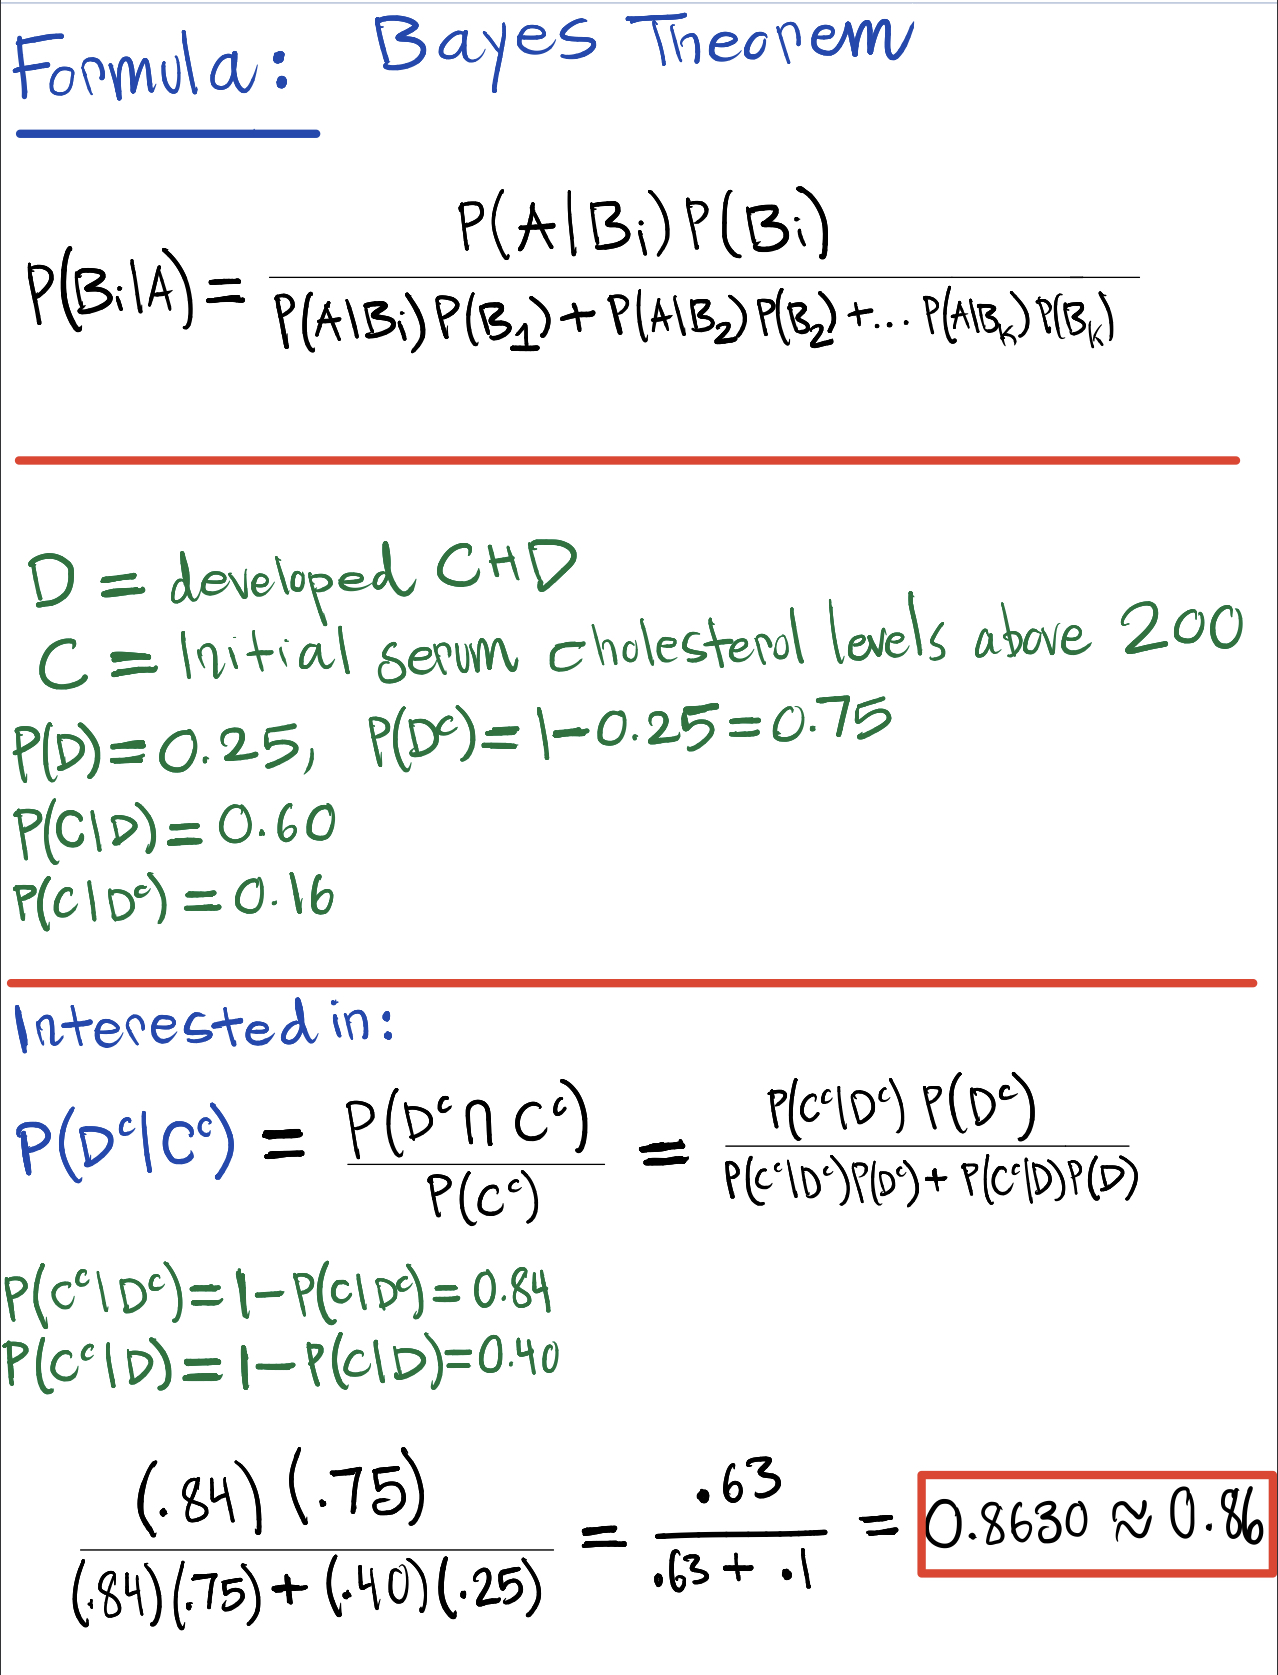 Formula: Bayes Theorem
P(Bi|A) = P(A|Bi) P(Bi) / P(A|Bi) P(B₁) + P(A|B₂) P(B₂) + ... P(A|Bₖ) P(Bₖ)
D = developed CHD
C = Initial serum cholesterol levels above 200
P(D) = 0.25, P(Dᶜ) = 1 - 0.25 = 0.75
P(C|D) = 0.60
P(C|Dᶜ) = 0.16
Interested in:
P(Dᶜ|Cᶜ) = P(Dᶜ ∩ Cᶜ) / P(Cᶜ) = P(Cᶜ|Dᶜ) P(Dᶜ) / P(Cᶜ|Dᶜ)P(Dᶜ) + P(Cᶜ|D)P(D)
P(Cᶜ|Dᶜ) = 1 - P(C|Dᶜ) = 0.84
P(Cᶜ|D) = 1 - P(C|D) = 0.40
(.84) (.75) / (.84)(.75) + (.40)(.25) = .63 / .63 + .1 = 0.8630 ≈ 0.86